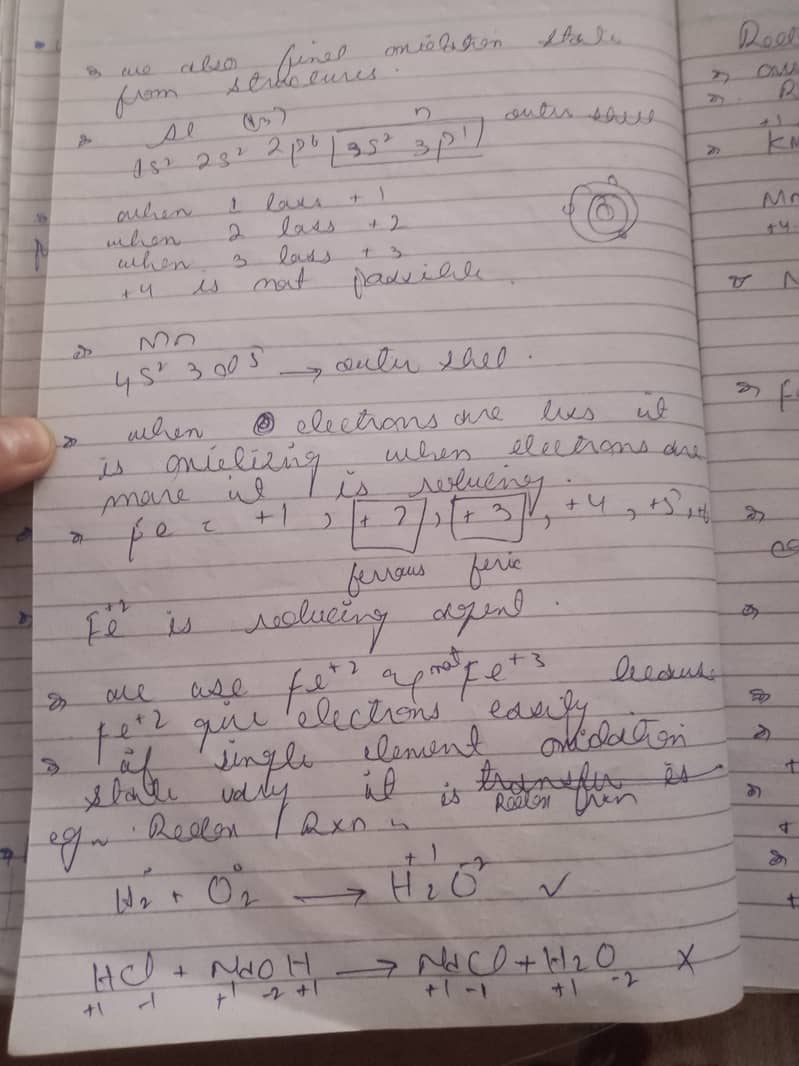 we also find oxidation state
from structures.
Al (13) n
1s² 2s² 2p⁶ 3s² 3p¹ outer shell
when 1 lass +1
when 2 lass +2
when 3 lass +3
+4 is not possible.
Mn
4s² 3d⁵ → outer shel.
when electrons are less it
is oxidizing when electrons are
more it is reducing.
Fe = +1, +2, +3, +4, +5, +6
ferrous feric
Fe⁺² is reducing agent.
we use Fe⁺² not Fe⁺³ becaus
Fe⁺² give electrons easily
if single element oxidation
state vary it is transfer is
Redox then
eg~ Redox Rxn
H₂ + O₂ → H₂O ✓
0 0 +1 -2
HCl + NaOH → NaCl + H₂O ×
+1 -1 +1 -2 +1 +1 -1 +1 -2
Redo
R
+1
KM
Mn
+4
N
F